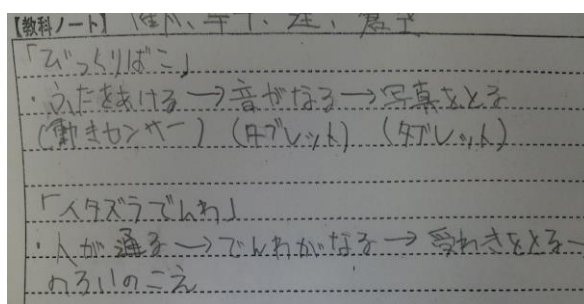 【教科ノート】
「びっくりばこ」
・ふたをあける→音がなる→写真をとる
(動きセンサー) (タブレット) (タブレット)
「イタズラでんわ」
・人が通る→でんわがなる→受わきをとる→
のろいのこえ